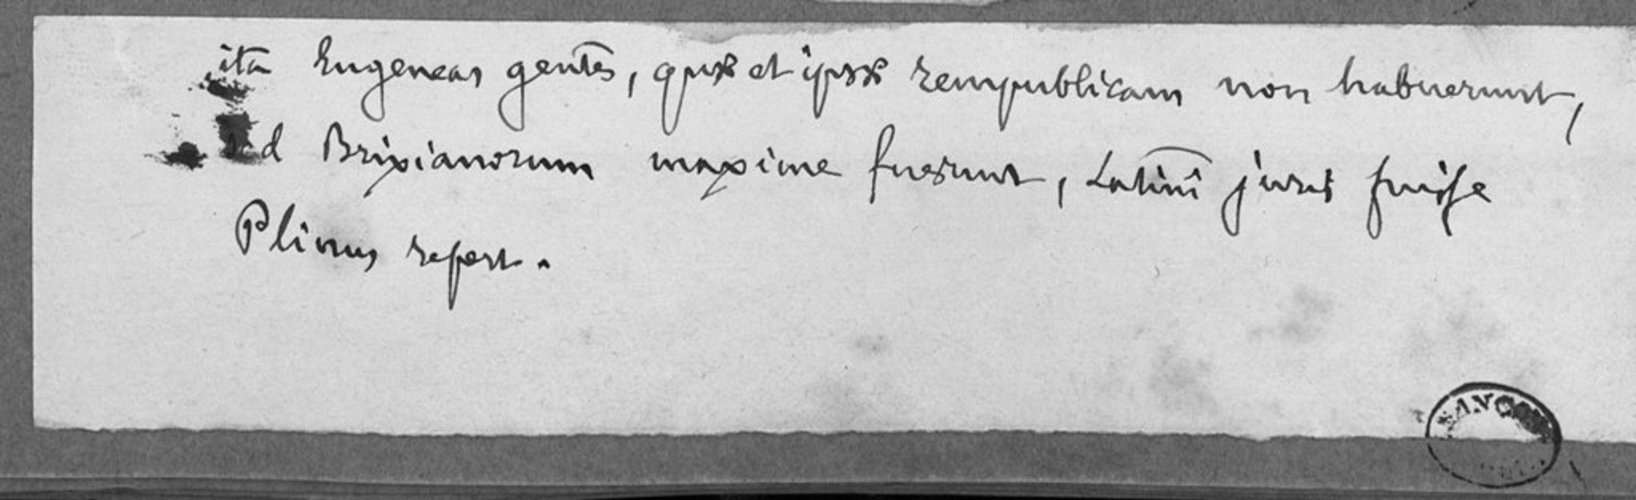 ita Eugeneas gentes, quæ et ipsæ rempublicam non habuerunt,
sed Brixianorum maxime fuerunt, Latini juris fuisse
Plinius refert.